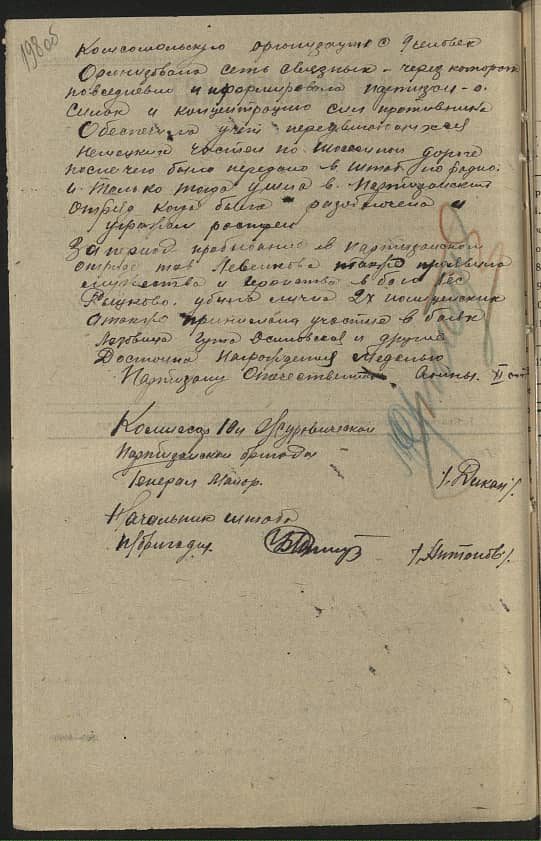 198об
Комсомольскую организацию с 9 человек
Организовала сеть связных - через которых
повседневно информировала партизан - о.
силах и концентрацию сил противника
Обеспечила учет передвигающихся
немецких частей по шоссейной дороге
после чего было передано в штаб по радио.
и только тогда ушла в Партизанский
отряд когда была разоблачена и
угрожал расстрел
За период пребывания в партизанском
отряде тов Левенкова также проявила
мужество и геройство в бою
убила лично 2х полицейских
а также принимала участие в боях
Лазовица Гута Осиповская и другие
Достойна Награждения Медалью
Партизану Отечественной Войны. II ст
Комиссар 10й Журавичской
Партизанской бригады
Генерал Майор. /. Дикан /.
Начальник штаба
п/бригады /Антонов/.